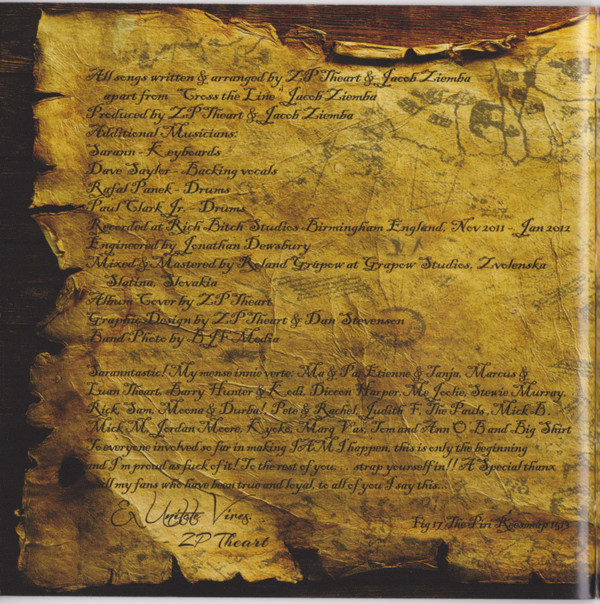 All songs written & arranged by ZP Theart & Jacob Ziemba
apart from "Cross the Line" Jacob Ziemba
Produced by ZP Theart & Jacob Ziemba
Additional Musicians:
Sarann - Keyboards
Dave Sayler - Backing vocals
Rafal Panek - Drums
Paul Clark Jr. - Drums
Recorded at Rich Bitch Studios - Birmingham England, Nov 2011 - Jan 2012
Engineered by Jonathan Dewsbury
Mixed & Mastered by Roland Grapow at Grapow Studios, Zvolenska
Slatina, Slovakia
Album Cover by ZP Theart
Graphic Design by ZP Theart & Dan Stevenson
Band Photo by Media
Saranntastic! My mense innie verte: Ma & Pa, Etienne & Tanja, Marcus &
Luan Theart, Barry Hunter & Diccon Harper, Mo Stewie Murray,
Rick, Sam, Moena & Durbal, Pete & Rachel, Judith F, The Pauls, Mick B,
Mick M, Jordan Moore, Kyoko, Marg Vas, Tom and Ann O B and Big Shirt
To everyone involved so far in making I AM I happen, this is only the beginning
and I'm proud as fuck of it! To the rest of you . . . strap yourself in!! A Special thanx
all my fans who have been true and loyal, to all of you I say this...
Ex Unitate Vires,
ZP Theart
Fig 17 The Piri 1513